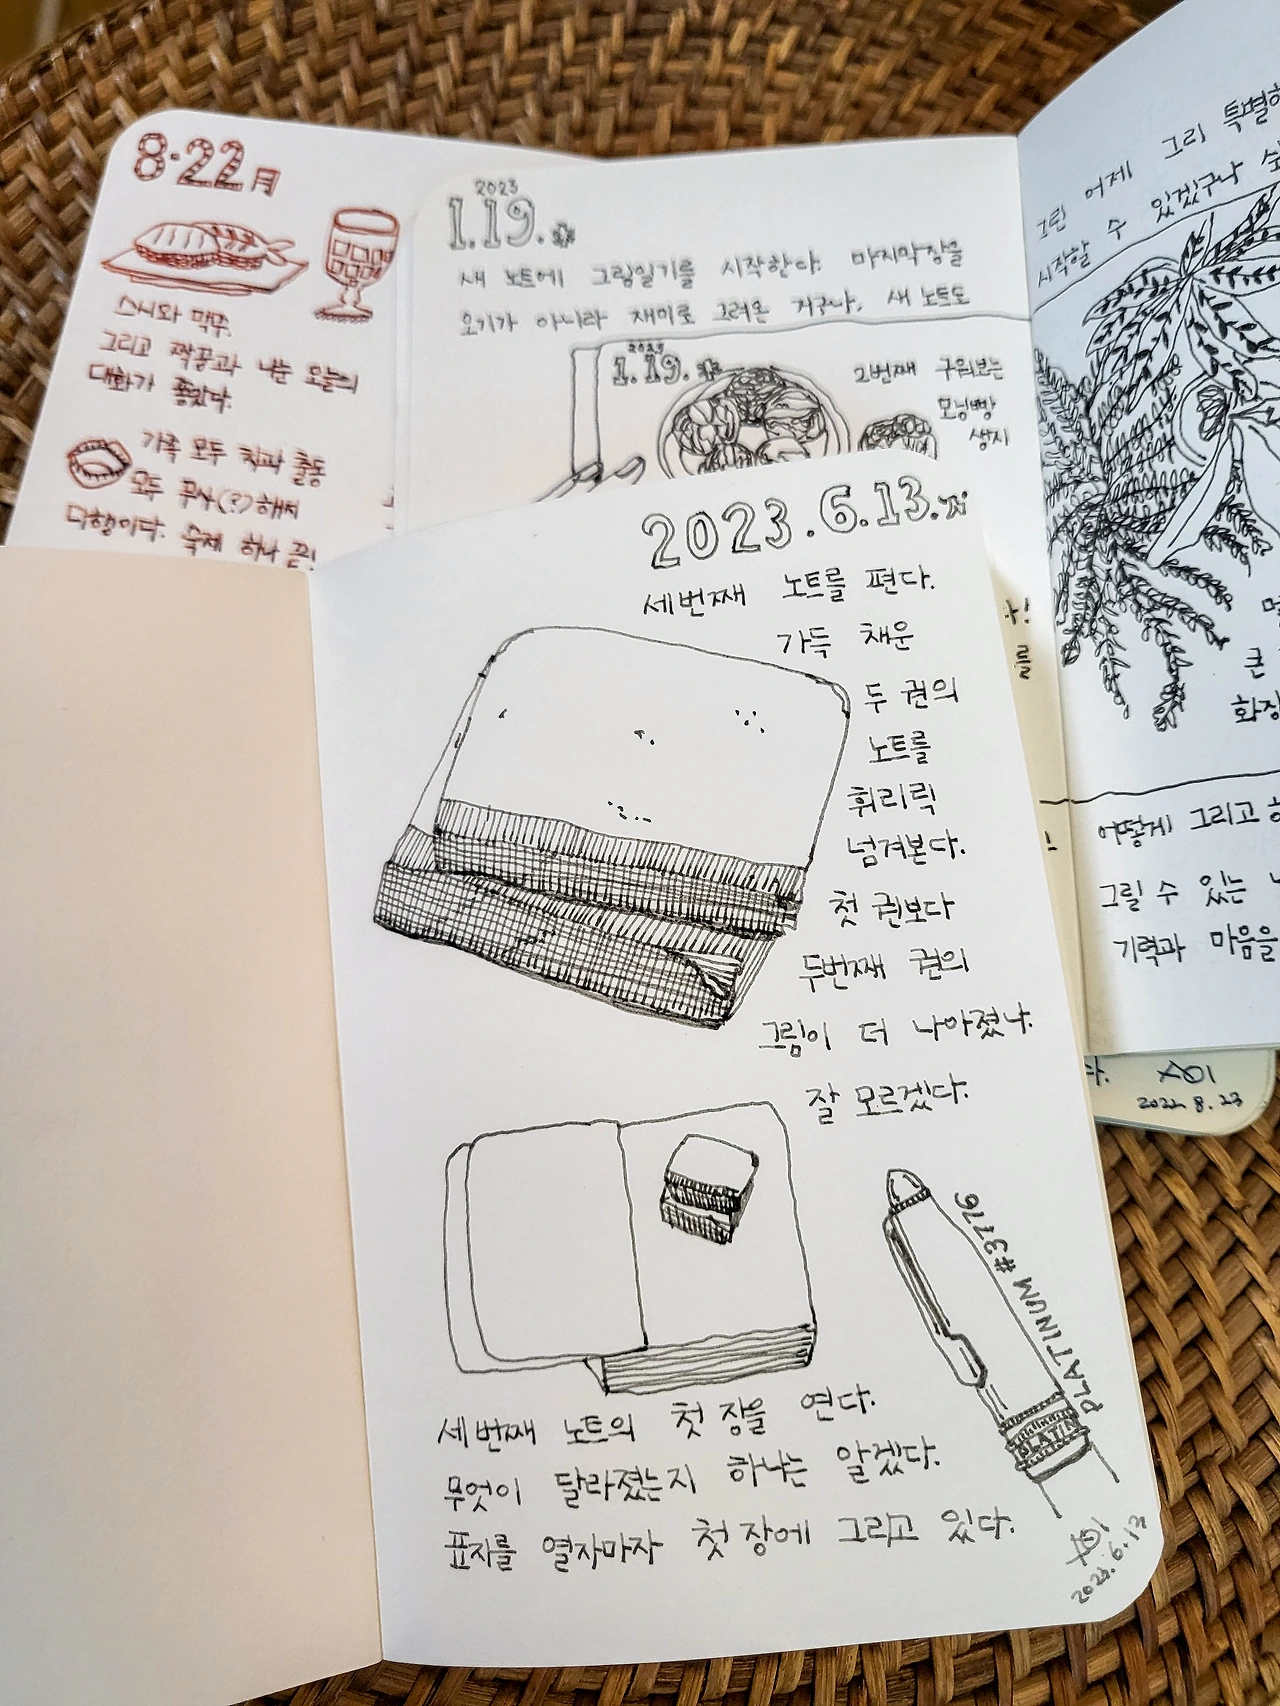 8.22月
스시와 맥주
그리고 짝꿍과 나눈 오늘의
대화가 좋았다.
가족 모두 치과 출동
모두 무사(?)해서
다행이다. 숙제 하나 끝!
2023
1.19.
새 노트에 그림일기를 시작한다. 마지막장을
오기가 아니라 재미로 그려온 거구나, 새 노트도
2023
1.19.
2번째 구워보는
모닝빵
생지
그린 어제 그리 특별하
시작할 수 있겠구나 싶
큰
화장
를
어떻게 그리고
그릴 수 있는
기력과 마음을
다.
2022.8.23
2023.6.13.
세번째 노트를 편다.
가득 채운
두 권의
노트를
휘리릭
넘겨본다.
첫 권보다
두번째 권의
그림이 더 나아졌나.
잘 모르겠다.
PLATINUM #3776
PLATIN
세번째 노트의 첫 장을 연다.
무엇이 달라졌는지 하나는 알겠다.
표지를 열자마자 첫 장에 그리고 있다.
2023.6.13